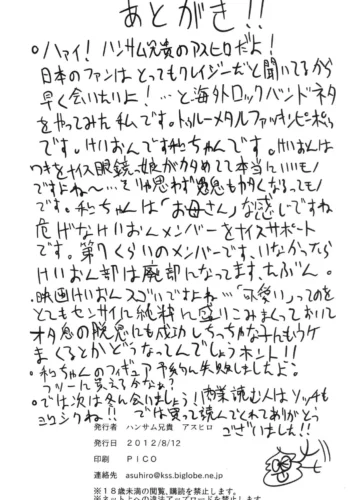 あとがき!!
○ハァイ! ハンサム兄貴のアスヒロだよ!
日本のファンはとってもクレイジーだと聞いてるから
早く会いたいよ!…と海外ロックバンドネタ
をやってみた私です。トゥルーメタルファッキンピーポー
です。けいおんです和ちゃんです。けいおんは
ワキをナイス眼鏡っ娘がカタめてて本当にいいモノ
ですよね〜…では思わず愚息もカタくなるってモノ
です。和ちゃんは「お母さん」な感じですね
危げなけいおんメンバーをナイスサポート
です。第7くらいのメンバーです、いなかったら
けいおん部は廃部になってます、たぶん。
・映画けいおんスゴいですよね…「可愛い」ってのを
とてもセンサイに純粋に盛りこみまくっておいて
オタ臭の脱臭にも成功しちっちゃな子にもウケ
まくるとかどうなってんでしょうホント!!
・和ちゃんのフィギュア予約失敗しましたよ。
フツーに買えてかなぁ?
○では次は冬会いましょう! 商業読む人はソッチも
ヨロシクね!! では買って読んでくれてありがとう
ございました!!
発行者 ハンサム兄貴 アスヒロ
発行日 2012/8/12
印刷 PICO
連絡先 asuhiro@kss.biglobe.ne.jp
※18歳未満の閲覧、購読を禁止します。
※ネット上への違法アップロードを禁止します。